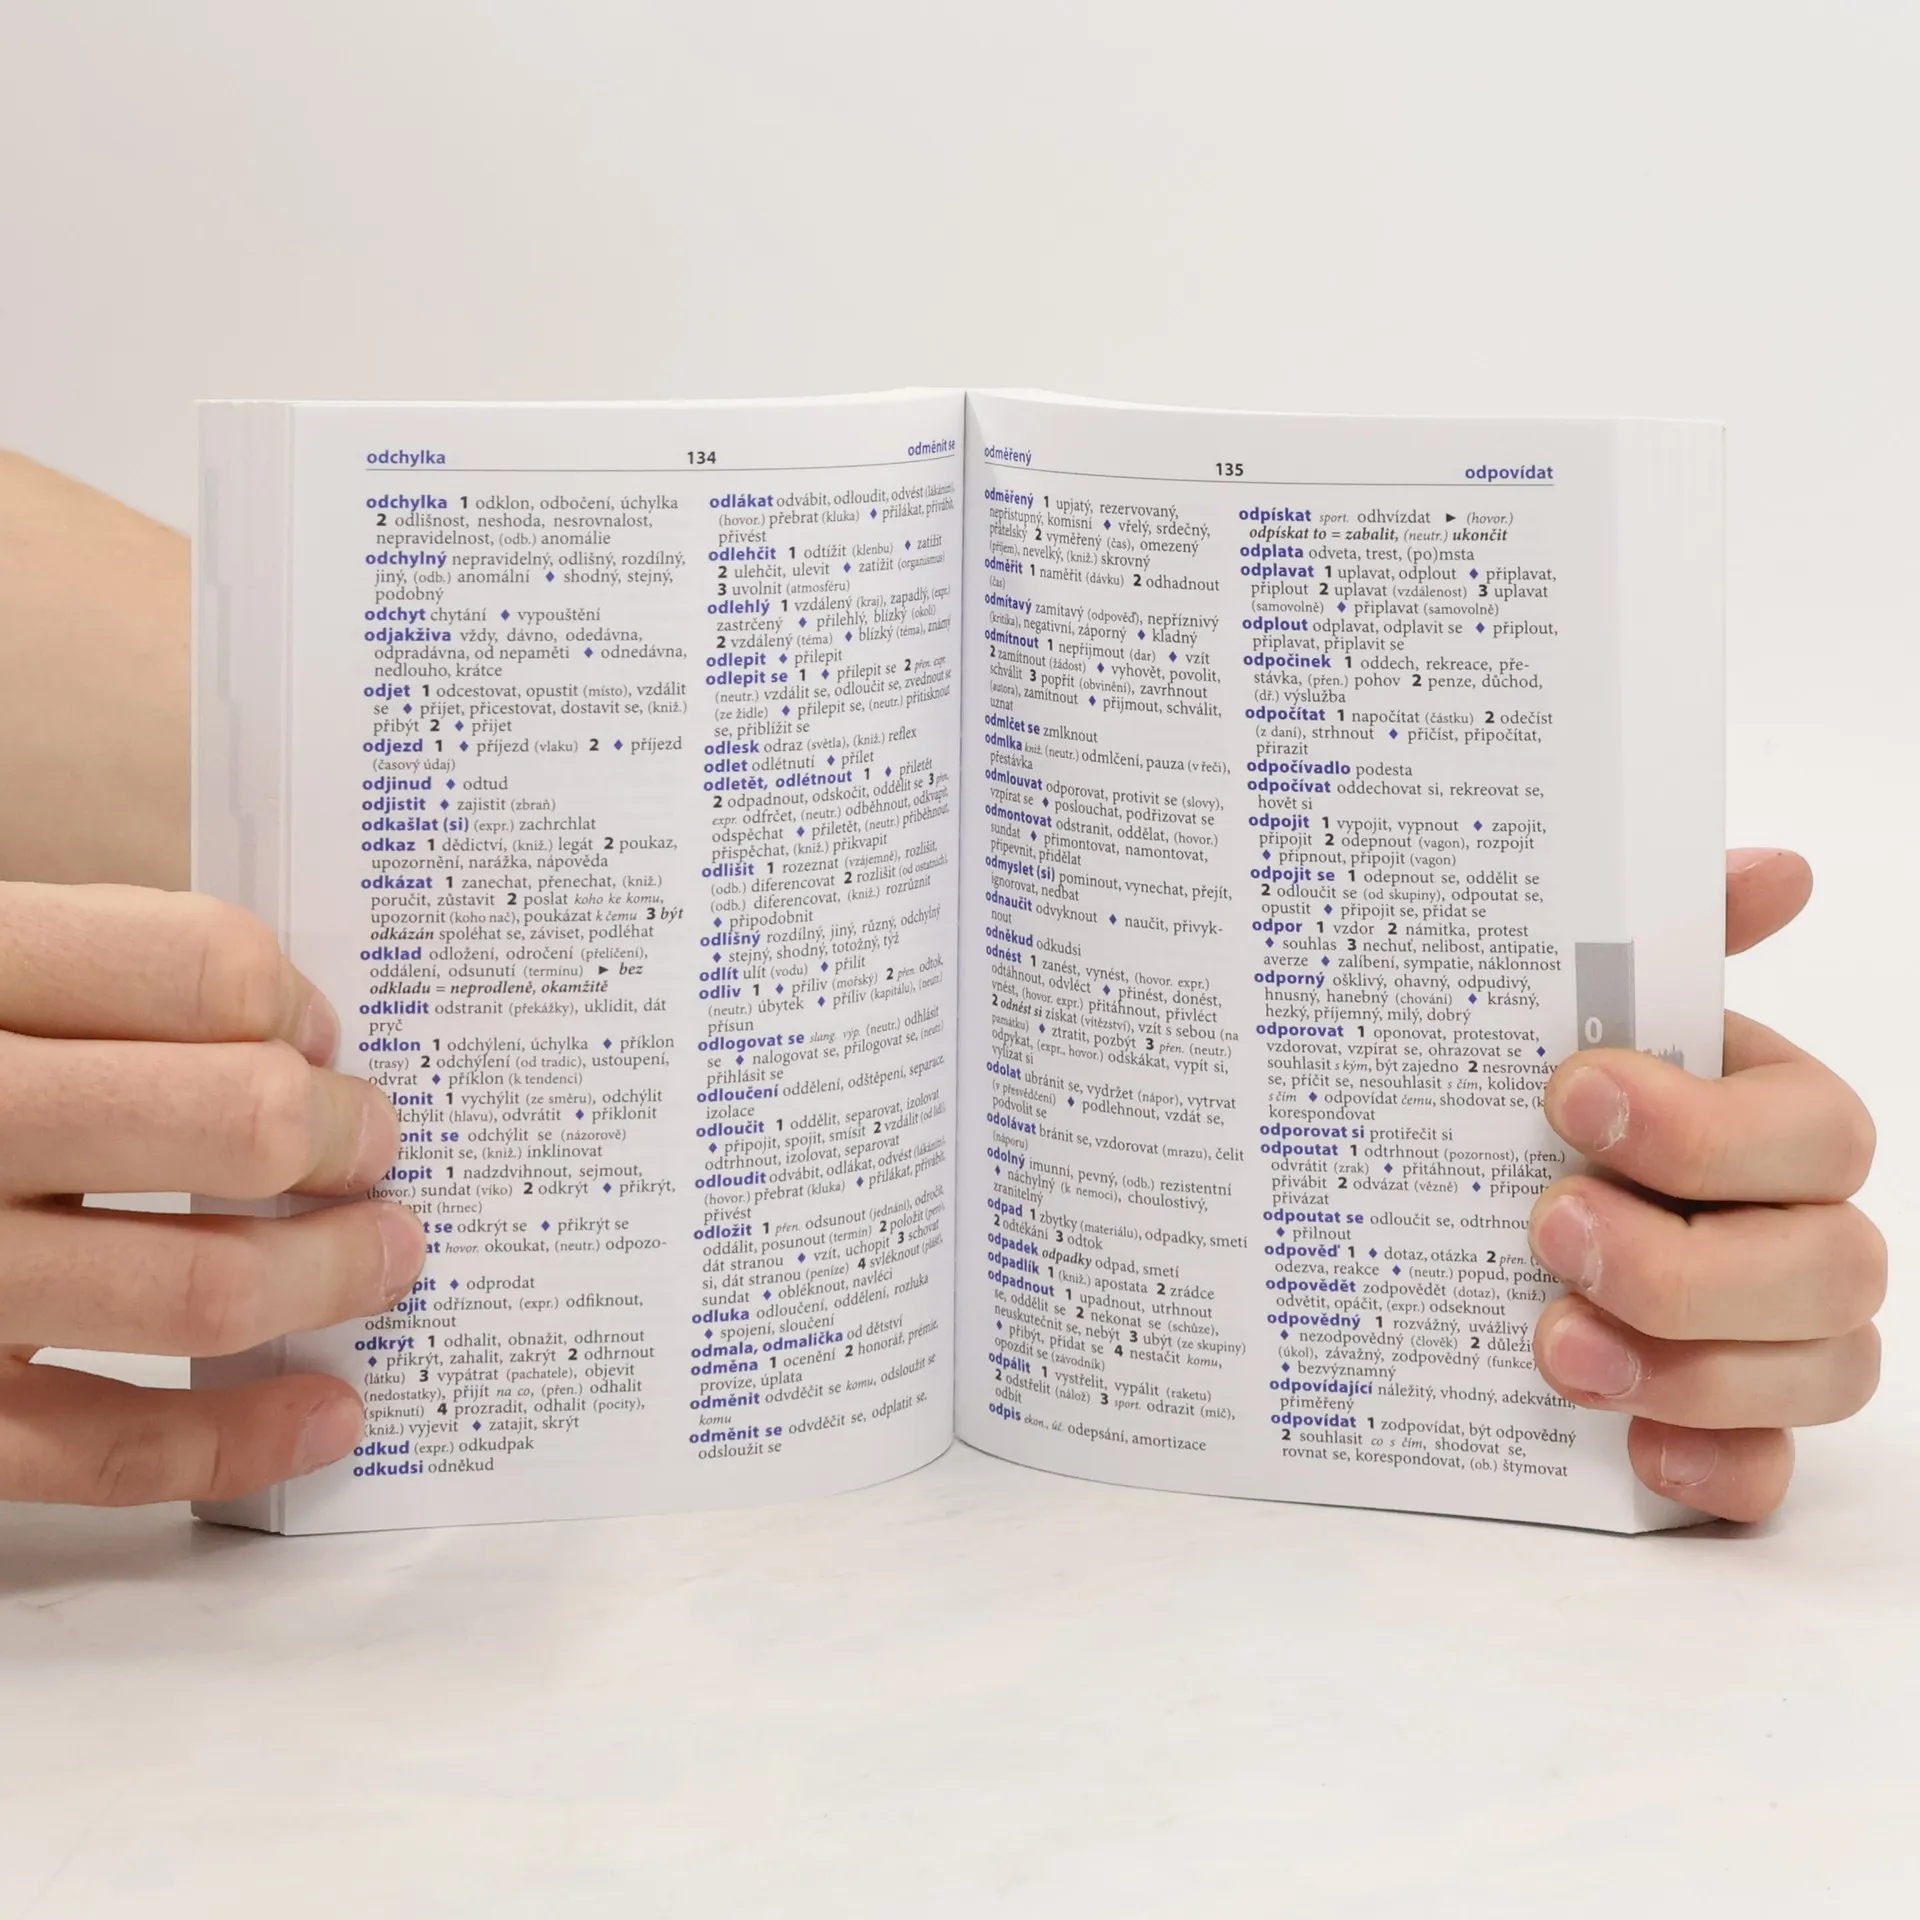 odchylka 134 odměnit se
odchylka 1 odklon, odbočení, úchylka
2 odlišnost, neshoda, nesrovnalost,
nepravidelnost, (odb.) anomálie
odchylný nepravidelný, odlišný, rozdílný,
jiný, (odb.) anomální ♦ shodný, stejný,
podobný
odchyt chytání ♦ vypouštění
odjakživa vždy, dávno, odedávna,
odpradávna, od nepaměti ♦ odnedávna,
nedlouho, krátce
odjet 1 odcestovat, opustit (místo), vzdálit
se ♦ přijet, přicestovat, dostavit se, (kniž.)
přibýt 2 ♦ přijet
odjezd 1 ♦ příjezd (vlaku) 2 ♦ příjezd
(časový údaj)
odjinud ♦ odtud
odjistit ♦ zajistit (zbraň)
odkašlat (si) (expr.) zachrchlat
odkaz 1 dědictví, (kniž.) legát 2 poukaz,
upozornění, narážka, nápověda
odkázat 1 zanechat, přenechat, (kniž.)
poručit, zůstavit 2 poslat koho ke komu,
upozornit (koho nač), poukázat k čemu 3 být
odkázán spoléhat se, záviset, podléhat
odklad odložení, odročení (přelíčení),
oddálení, odsunutí (termínu) ► bez
odkladu = neprodleně, okamžitě
odklidit odstranit (překážky), uklidit, dát
pryč
odklon 1 odchýlení, úchylka ♦ příklon
(trasy) 2 odchýlení (od tradic), ustoupení,
odvrat ♦ příklon (k tendenci)
klonit 1 vychýlit (ze směru), odchýlit
dchýlit (hlavu), odvrátit ♦ přiklonit
onit se odchýlit se (názorově)
řiklonit se, (kniž.) inklinovat
klopit 1 nadzdvihnout, sejmout,
(hovor.) sundat (víko) 2 odkrýt ♦ přikrýt,
opit (hrnec)
t se odkrýt se ♦ přikrýt se
at hovor. okoukat, (neutr.) odpozo-
pit ♦ odprodat
ojit odříznout, (expr.) odfiknout,
odšmiknout
odkrýt 1 odhalit, obnažit, odhrnout
♦ přikrýt, zahalit, zakrýt 2 odhrnout
(látku) 3 vypátrat (pachatele), objevit
(nedostatky), přijít na co, (přen.) odhalit
(spiknutí) 4 prozradit, odhalit (pocity),
(kniž.) vyjevit ♦ zatajit, skrýt
odkud (expr.) odkudpak
odkudsi odněkud
odlákat odvábit, odloudit, odvést (lákáním),
(hovor.) přebrat (kluka) ♦ přilákat, přivábit,
přivést
odlehčit 1 odtížit (klenbu) ♦ zatížit
2 ulehčit, ulevit ♦ zatížit (organismus)
3 uvolnit (atmosféru)
odlehlý 1 vzdálený (kraj), zapadlý, (expr.)
zastrčený ♦ přilehlý, blízký (okolí)
2 vzdálený (téma) ♦ blízký (téma), známý
odlepit ♦ přilepit
odlepit se 1 ♦ přilepit se 2 přen. expr.
(neutr.) vzdálit se, odloučit se, zvednout se
(ze židle) ♦ přilepit se, (neutr.) přitisknout
se, přiblížit se
odlesk odraz (světla), (kniž.) reflex
odlet odlétnutí ♦ přílet
odletět, odlétnout 1 ♦ přiletět
2 odpadnout, odskočit, oddělit se 3 přen.
expr. odfrčet, (neutr.) odběhnout, odkvapit,
odspěchat ♦ přiletět, (neutr.) přiběhnout,
přispěchat, (kniž.) přikvapit
odlišit 1 rozeznat (vzájemně), rozlišit,
(odb.) diferencovat 2 rozlišit (od ostatních),
(odb.) diferencovat, (kniž.) rozrůznit
♦ připodobnit
odlišný rozdílný, jiný, různý, odchylný
♦ stejný, shodný, totožný, týž
odlít ulít (vodu) ♦ přilít
odliv 1 ♦ příliv (mořský) 2 přen. odtok,
(neutr.) úbytek ♦ příliv (kapitálu), (neutr.)
přísun
odlogovat se slang. výp. (neutr.) odhlásit
se ♦ nalogovat se, přilogovat se, (neutr.)
přihlásit se
odloučení oddělení, odštěpení, separace,
izolace
odloučit 1 oddělit, separovat, izolovat
♦ připojit, spojit, smísit 2 vzdálit (od lidí),
odtrhnout, izolovat, separovat
odloudit odvábit, odlákat, odvést (lákáním),
(hovor.) přebrat (kluka) ♦ přilákat, přivábit,
přivést
odložit 1 přen. odsunout (jednání), odročit,
oddálit, posunout (termín) 2 položit (pero),
dát stranou ♦ vzít, uchopit 3 schovat
si, dát stranou (peníze) 4 svléknout (plášť),
sundat ♦ obléknout, navléci
odluka odloučení, oddělení, rozluka
♦ spojení, sloučení
odmala, odmalička od dětství
odměna 1 ocenění 2 honorář, prémie,
provize, úplata
odměnit odvděčit se komu, odsloužit se
komu
odměnit se odvděčit se, odplatit se,
odsloužit se
odměřený 135 odpovídat
odměřený 1 upjatý, rezervovaný,
nepřístupný, komisní ♦ vřelý, srdečný,
přátelský 2 vyměřený (čas), omezený
(příjem), nevelký, (kniž.) skrovný
odměřit 1 naměřit (dávku) 2 odhadnout
(čas)
odmítavý zamítavý (odpověď), nepříznivý
(kritika), negativní, záporný ♦ kladný
odmítnout 1 nepřijmout (dar) ♦ vzít
2 zamítnout (žádost) ♦ vyhovět, povolit,
schválit 3 popřít (obvinění), zavrhnout
(autora), zamítnout ♦ přijmout, schválit,
uznat
odmlčet se zmlknout
odmlka kniž. (neutr.) odmlčení, pauza (v řeči),
přestávka
odmlouvat odporovat, protivit se (slovy),
vzpírat se ♦ poslouchat, podřizovat se
odmontovat odstranit, oddělat, (hovor.)
sundat ♦ přimontovat, namontovat,
připevnit, přidělat
odmyslet (si) pominout, vynechat, přejít,
ignorovat, nedbat
odnaučit odvyknout ♦ naučit, přivyk-
nout
odněkud odkudsi
odnést 1 zanést, vynést, (hovor. expr.)
odtáhnout, odvléct ♦ přinést, donést,
vnést, (hovor. expr.) přitáhnout, přivléct
2 odnést si získat (vítězství), vzít s sebou (na
památku) ♦ ztratit, pozbýt 3 přen. (neutr.)
odpykat, (expr., hovor.) odskákat, vypít si,
vylízat si
odolat ubránit se, vydržet (nápor), vytrvat
(v přesvědčení) ♦ podlehnout, vzdát se,
podvolit se
odolávat bránit se, vzdorovat (mrazu), čelit
(náporu)
odolný imunní, pevný, (odb.) rezistentní
♦ náchylný (k nemoci), choulostivý,
zranitelný
odpad 1 zbytky (materiálu), odpadky, smetí
2 odtékání 3 odtok
odpadek odpadky odpad, smetí
odpadlík 1 (kniž.) apostata 2 zrádce
odpadnout 1 upadnout, utrhnout
se, oddělit se 2 nekonat se (schůze),
neuskutečnit se, nebýt 3 ubýt (ze skupiny)
♦ přibýt, přidat se 4 nestačit komu,
opozdit se (závodník)
odpálit 1 vystřelit, vypálit (raketu)
2 odstřelit (nálož) 3 sport. odrazit (míč),
odbít
odpis ekon., úč. odepsání, amortizace
odpískat sport. odhvízdat ► (hovor.)
odpískat to = zabalit, (neutr.) ukončit
odplata odveta, trest, (po)msta
odplavat 1 uplavat, odplout ♦ připlavat,
připlout 2 uplavat (vzdálenost) 3 uplavat
(samovolně) ♦ připlavat (samovolně)
odplout odplavat, odplavit se ♦ připlout,
připlavat, připlavit se
odpočinek 1 oddech, rekreace, pře-
stávka, (přen.) pohov 2 penze, důchod,
(dř.) výslužba
odpočítat 1 napočítat (částku) 2 odečíst
(z daní), strhnout ♦ přičíst, připočítat,
přirazit
odpočívadlo podesta
odpočívat oddechovat si, rekreovat se,
hovět si
odpojit 1 vypojit, vypnout ♦ zapojit,
připojit 2 odepnout (vagon), rozpojit
♦ připnout, připojit (vagon)
odpojit se 1 odepnout se, oddělit se
2 odloučit se (od skupiny), odpoutat se,
opustit ♦ připojit se, přidat se
odpor 1 vzdor 2 námitka, protest
♦ souhlas 3 nechuť, nelibost, antipatie,
averze ♦ zalíbení, sympatie, náklonnost
odporný ošklivý, ohavný, odpudivý,
hnusný, hanebný (chování) ♦ krásný,
hezký, příjemný, milý, dobrý
odporovat 1 oponovat, protestovat,
vzdorovat, vzpírat se, ohrazovat se ♦
souhlasit s kým, být zajedno 2 nesrovnáv
se, příčit se, nesouhlasit s čím, kolidova
s čím ♦ odpovídat čemu, shodovat se, (k
korespondovat
odporovat si protiřečit si
odpoutat 1 odtrhnout (pozornost), (přen.)
odvrátit (zrak) ♦ přitáhnout, přilákat,
přivábit 2 odvázat (vězně) ♦ připout
přivázat
odpoutat se odloučit se, odtrhnou
♦ přilnout
odpověď 1 ♦ dotaz, otázka 2 přen.
odezva, reakce ♦ (neutr.) popud, podně
odpovědět zodpovědět (dotaz), (kniž.)
odvětit, opáčit, (expr.) odseknout
odpovědný 1 rozvážný, uvážlivý
♦ nezodpovědný (člověk) 2 důleži
(úkol), závažný, zodpovědný (funkce)
♦ bezvýznamný
odpovídající náležitý, vhodný, adekvátní,
přiměřený
odpovídat 1 zodpovídat, být odpovědný
2 souhlasit co s čím, shodovat se,
rovnat se, korespondovat, (ob.) štymovat
O